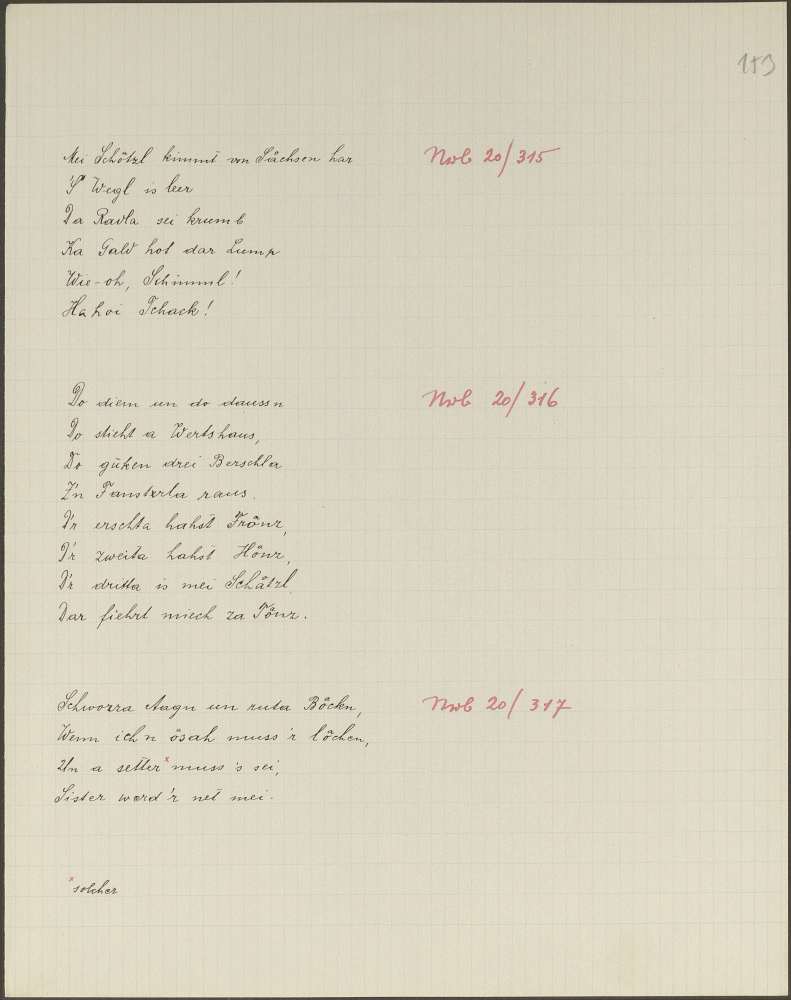 153
Mei Schötzl kimmt von Såchsen har
'S' Wegl is leer
Da Radla sei krumb
Ka Gald hot dar Lump
Wie-oh, Schimml!
Hahoi Tschack!
Nwb 20/315
Do diem un do daussn
Do stieht a Wertshaus,
Do güken drei Berschla
Z'n Fansterla raus.
D'r erschta hahst Frånz,
D'r zweita hahst Hånz,
D'r dritta is mei Schåtzl
Dar fiehrt miech za Tånz.
Nwb 20/316
Schworza Aagn un ruta Båckn,
Wenn ich'n åsah muss'r låchen,
Un a setter x muss's sei,
Sister werd'r net mei.
Nwb 20/317
x solcher